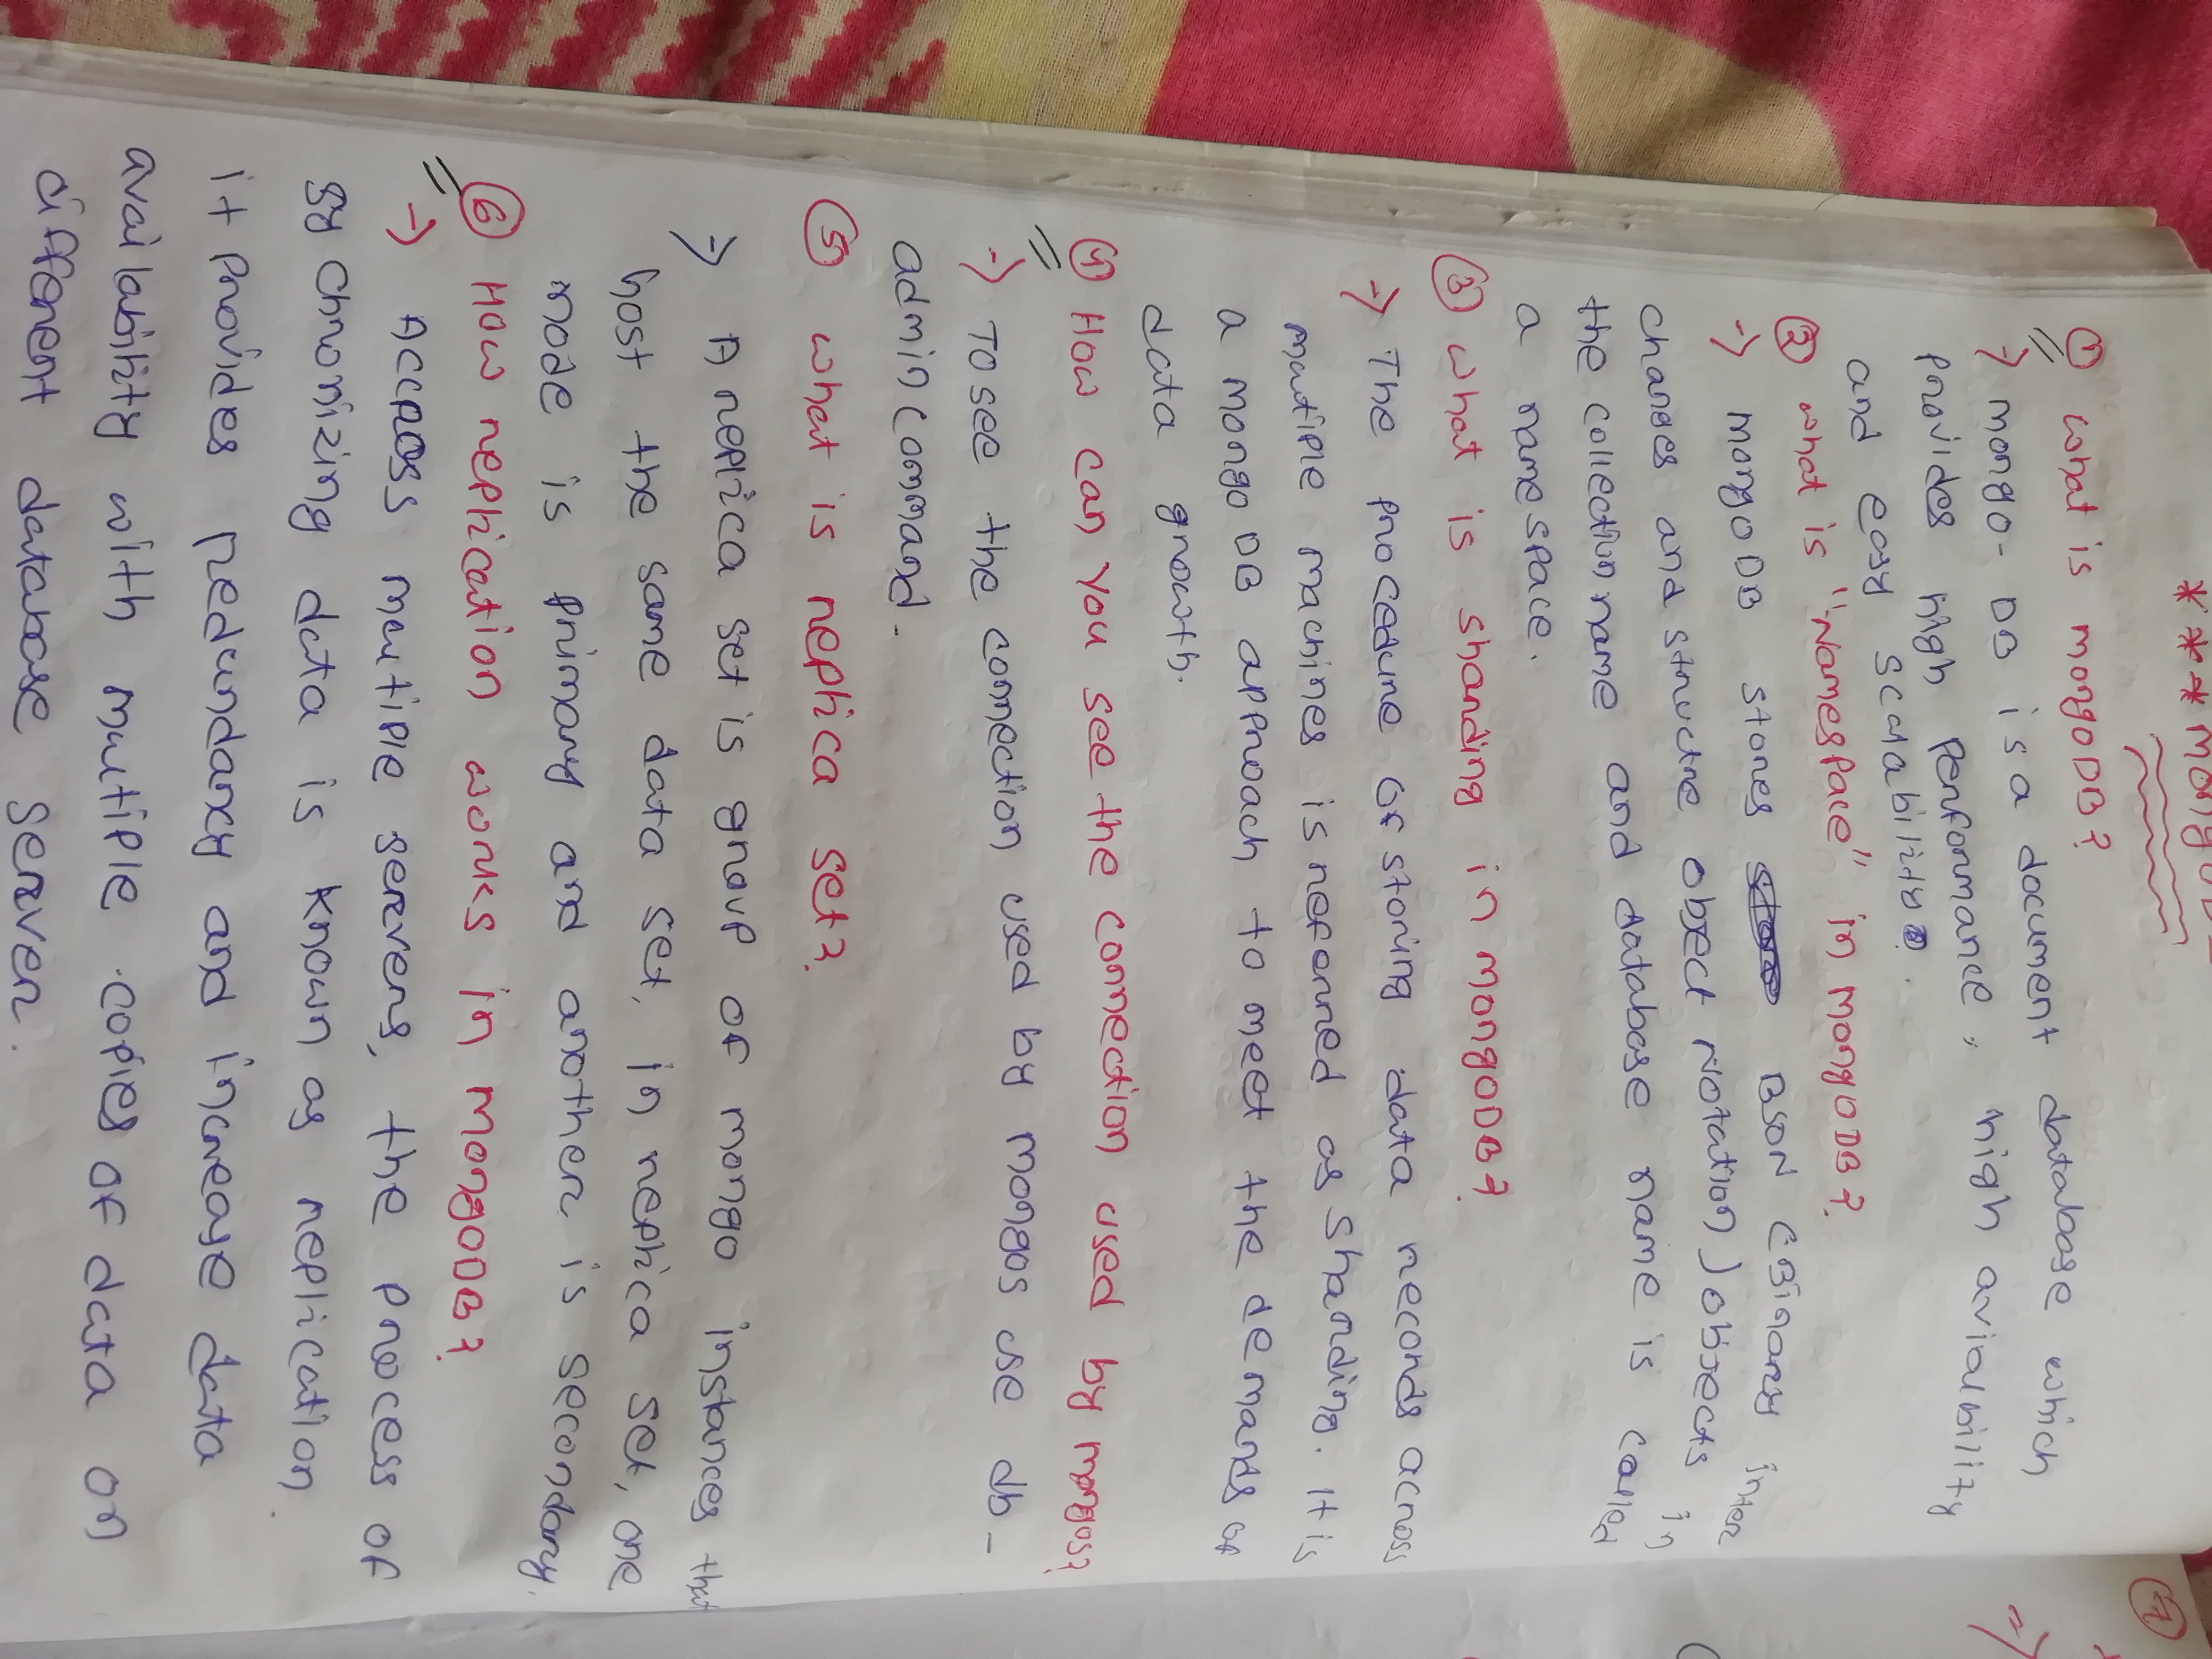 *** mongoDB
① What is mongoDB?
→ mongo-DB is a document database which
provides high performance, high avialbility
and easy scalability.
② What is "Namespace" in mongoDB?
→ mongoDB stores BSON (Binary inter
changes and structre object Notation) objects in
the collection name and database name is called
a namespace.
③ What is sharding in mongoDB?
→ The procedure of storing data records across
multiple machines is referred as Sharding. It is
a mongo DB approach to meet the demands of
data growth.
④ How can you see the connection used by mongos?
→ To see the connection used by mongos use db-
admin command.
⑤ What is replica set?
→ A replica set is group of mongo instances that
host the same data set, in replica set, one
node is primary and another is secondary.
⑥ How replication works in MongoDB?
→ Accross multiple servers, the process of
sychronizing data is known as replication.
it provides redundancy and increase data
availability with multiple copies of data on
different database server.
⑦